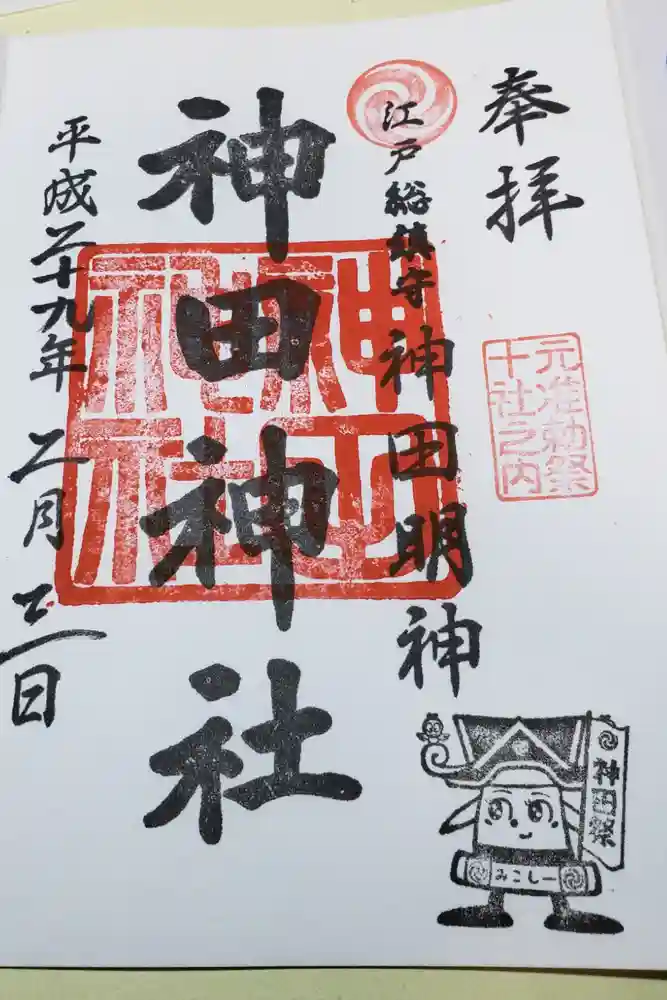 奉拝
元准勅祭
十社之内
江戸総鎮守 神田明神
神田神社
平成二十九年 二月 三日
神田祭
みこしー